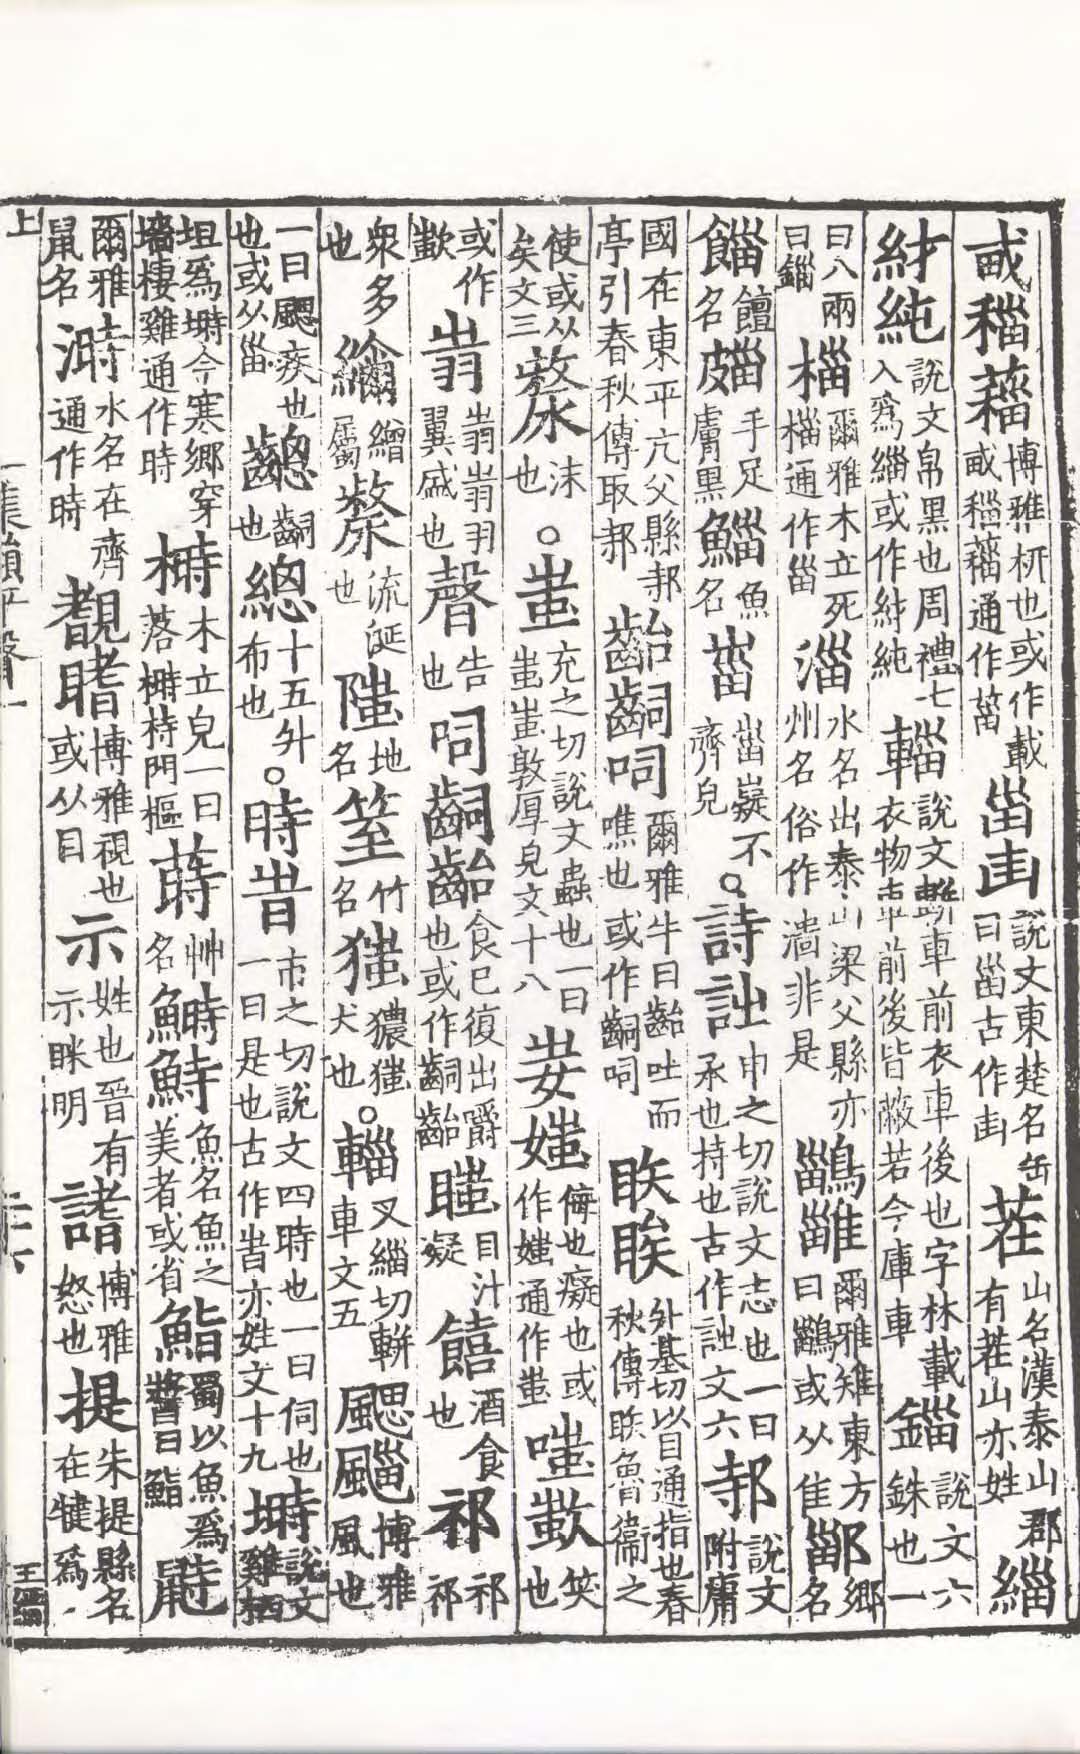 䎩䅔䕉博雅耕也或作䎩䅔䕉通作菑甾𠙹說文東楚名缶曰甾古作𠙹茬山名漢泰山郡有茬山亦姓緇
紂純說文帛黑也周禮七入爲緇或作紂純輜說文軿車前衣車後也字林載衣物車前後皆蔽若今庫車錙說文六銖也一
曰八兩曰錙椔爾雅木立死椔通作甾淄水名出泰山梁父縣亦州名俗作湽非是鶅雖爾雅雉東方曰鶅或从隹鄑鄉名
䭕饘名䐉手足膚黑鯔魚名𡺸𡺸嶷不齊皃。詩䛈申之切說文志也一曰承也持也古作䛈文六邿說文附庸
國在東平亢父縣邿亭引春秋傳取邿齝䶵呞爾雅牛曰齝吐而噍也或作䶵呞眣䀢外基切以目通指也春秋傳眣魯衞之
使或从矣文三漦沬也。蚩充之切說文蟲也一曰蚩蚩敦厚皃文十八㛂媸侮也癡也或作媸通作蚩嗤歖笑也
或作歖翤翤翤羽翼盛也𧫗告也呞䶵齝食已復出嚼也或作䶵齝𥊼目汁凝饎酒食也祁祁祁
衆多也䌤繒屬漦流涎也𨻄地名䇪竹名獃獶獃犬也。輜叉緇切軿車文五颸䬠博雅風也
一曰颸疾也也或从甾齝齝也緦十五升布也。時旹市之切說文四時也一曰伺也一曰是也古作旹亦姓文十九塒說文雞棲
垣爲塒今寒鄉穿墻棲雞通作時榯木立皃一曰落榯持門樞蒔艸名鰣鮚魚名魚之美者或省鮨蜀以魚爲醬曰鮨鼭
爾雅鼠名溡水名在齊通作時䚃䁺博雅視也或从目示姓也晉有示眯明諸博雅怒也提朱提縣名在犍爲
上
集韻平聲一
二十六